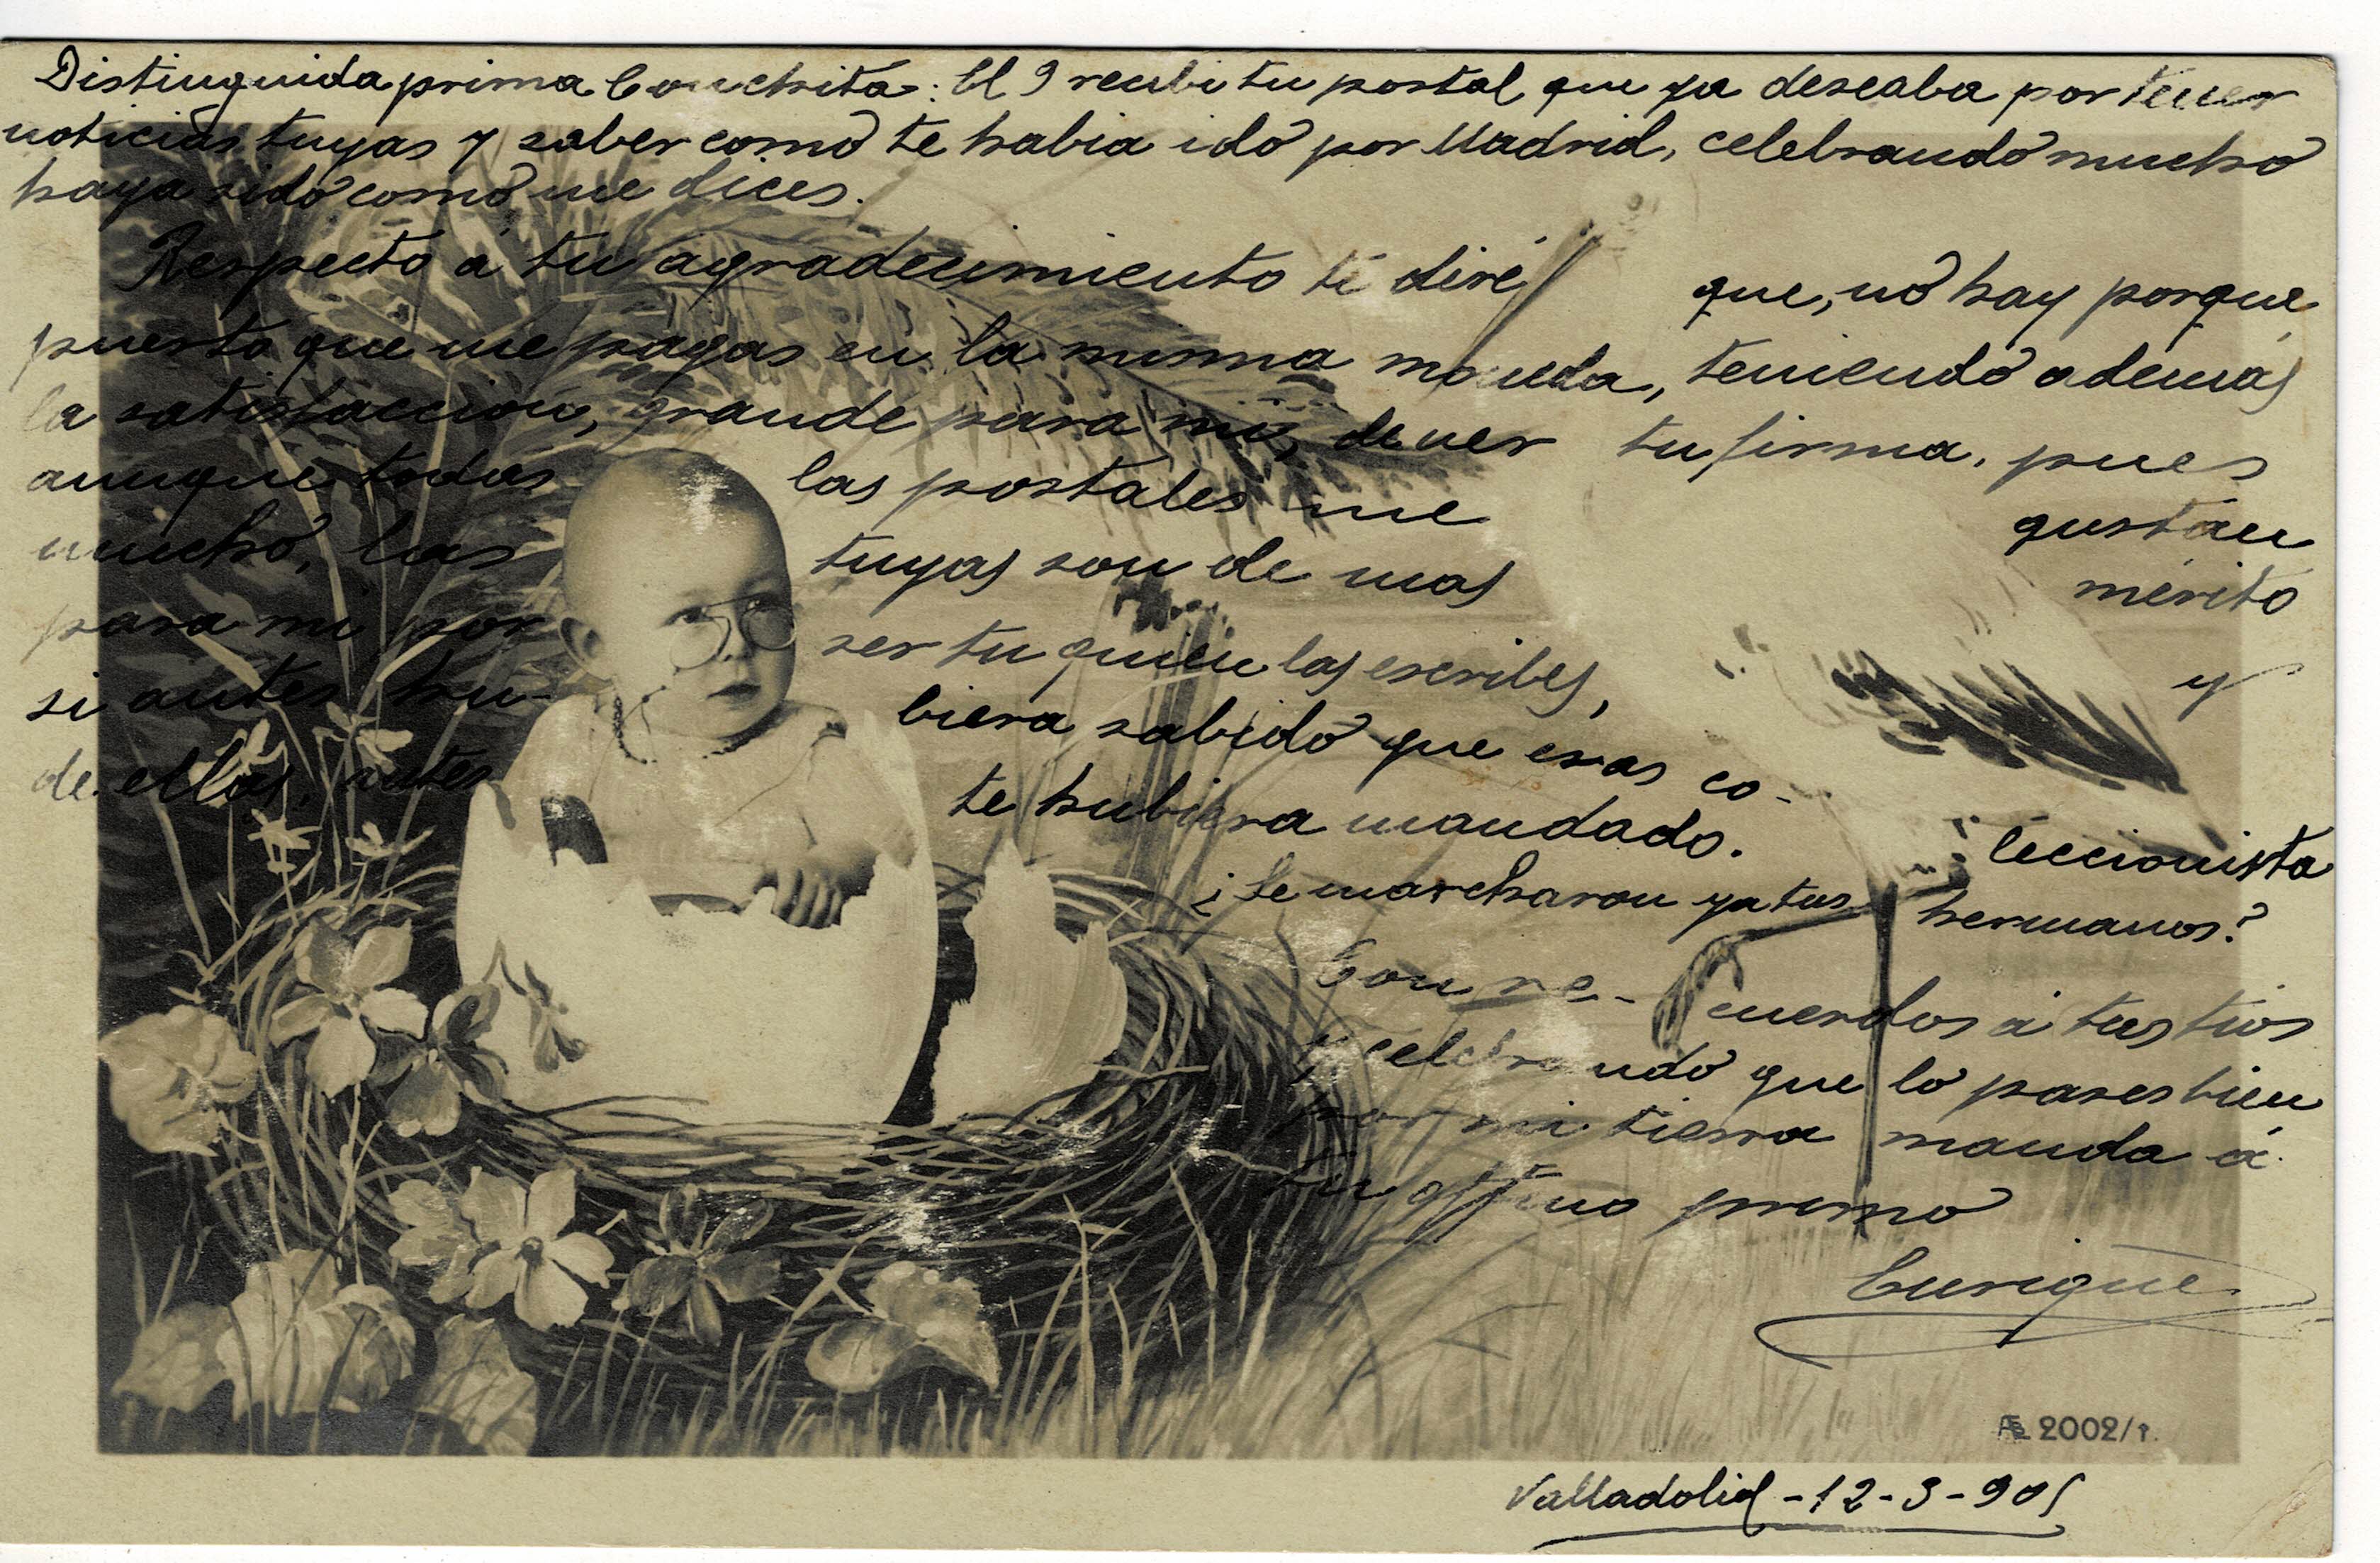 Distinguida prima Conchita: El 9 recibi tu postal que ya deseaba por tener
noticias tuyas y saber como te habia ido por Madrid, celebrando mucho
haya sido como me dices.
Respecto a tu agradecimiento te diré que, no hay porque
puesto que me pagas en la misma moneda, teniendo además
la satisfaccion, grande para mi, de ver tu firma, pues
aunque todas las postales me gustan
mucho, las tuyas son de mas mérito
para mi por ser tu quien las escribes, y
si antes hu- biera sabido que eras co- leccionista
de ellas, antes te hubiera mandado.
¿Se marcharon ya tus hermanos?
Con re- cuerdos á tus tios
y celebrando que lo pases bien
por mi tierra manda á
tu affmo primo
Enrique
2002/1.
Valladolid - 12-3-905